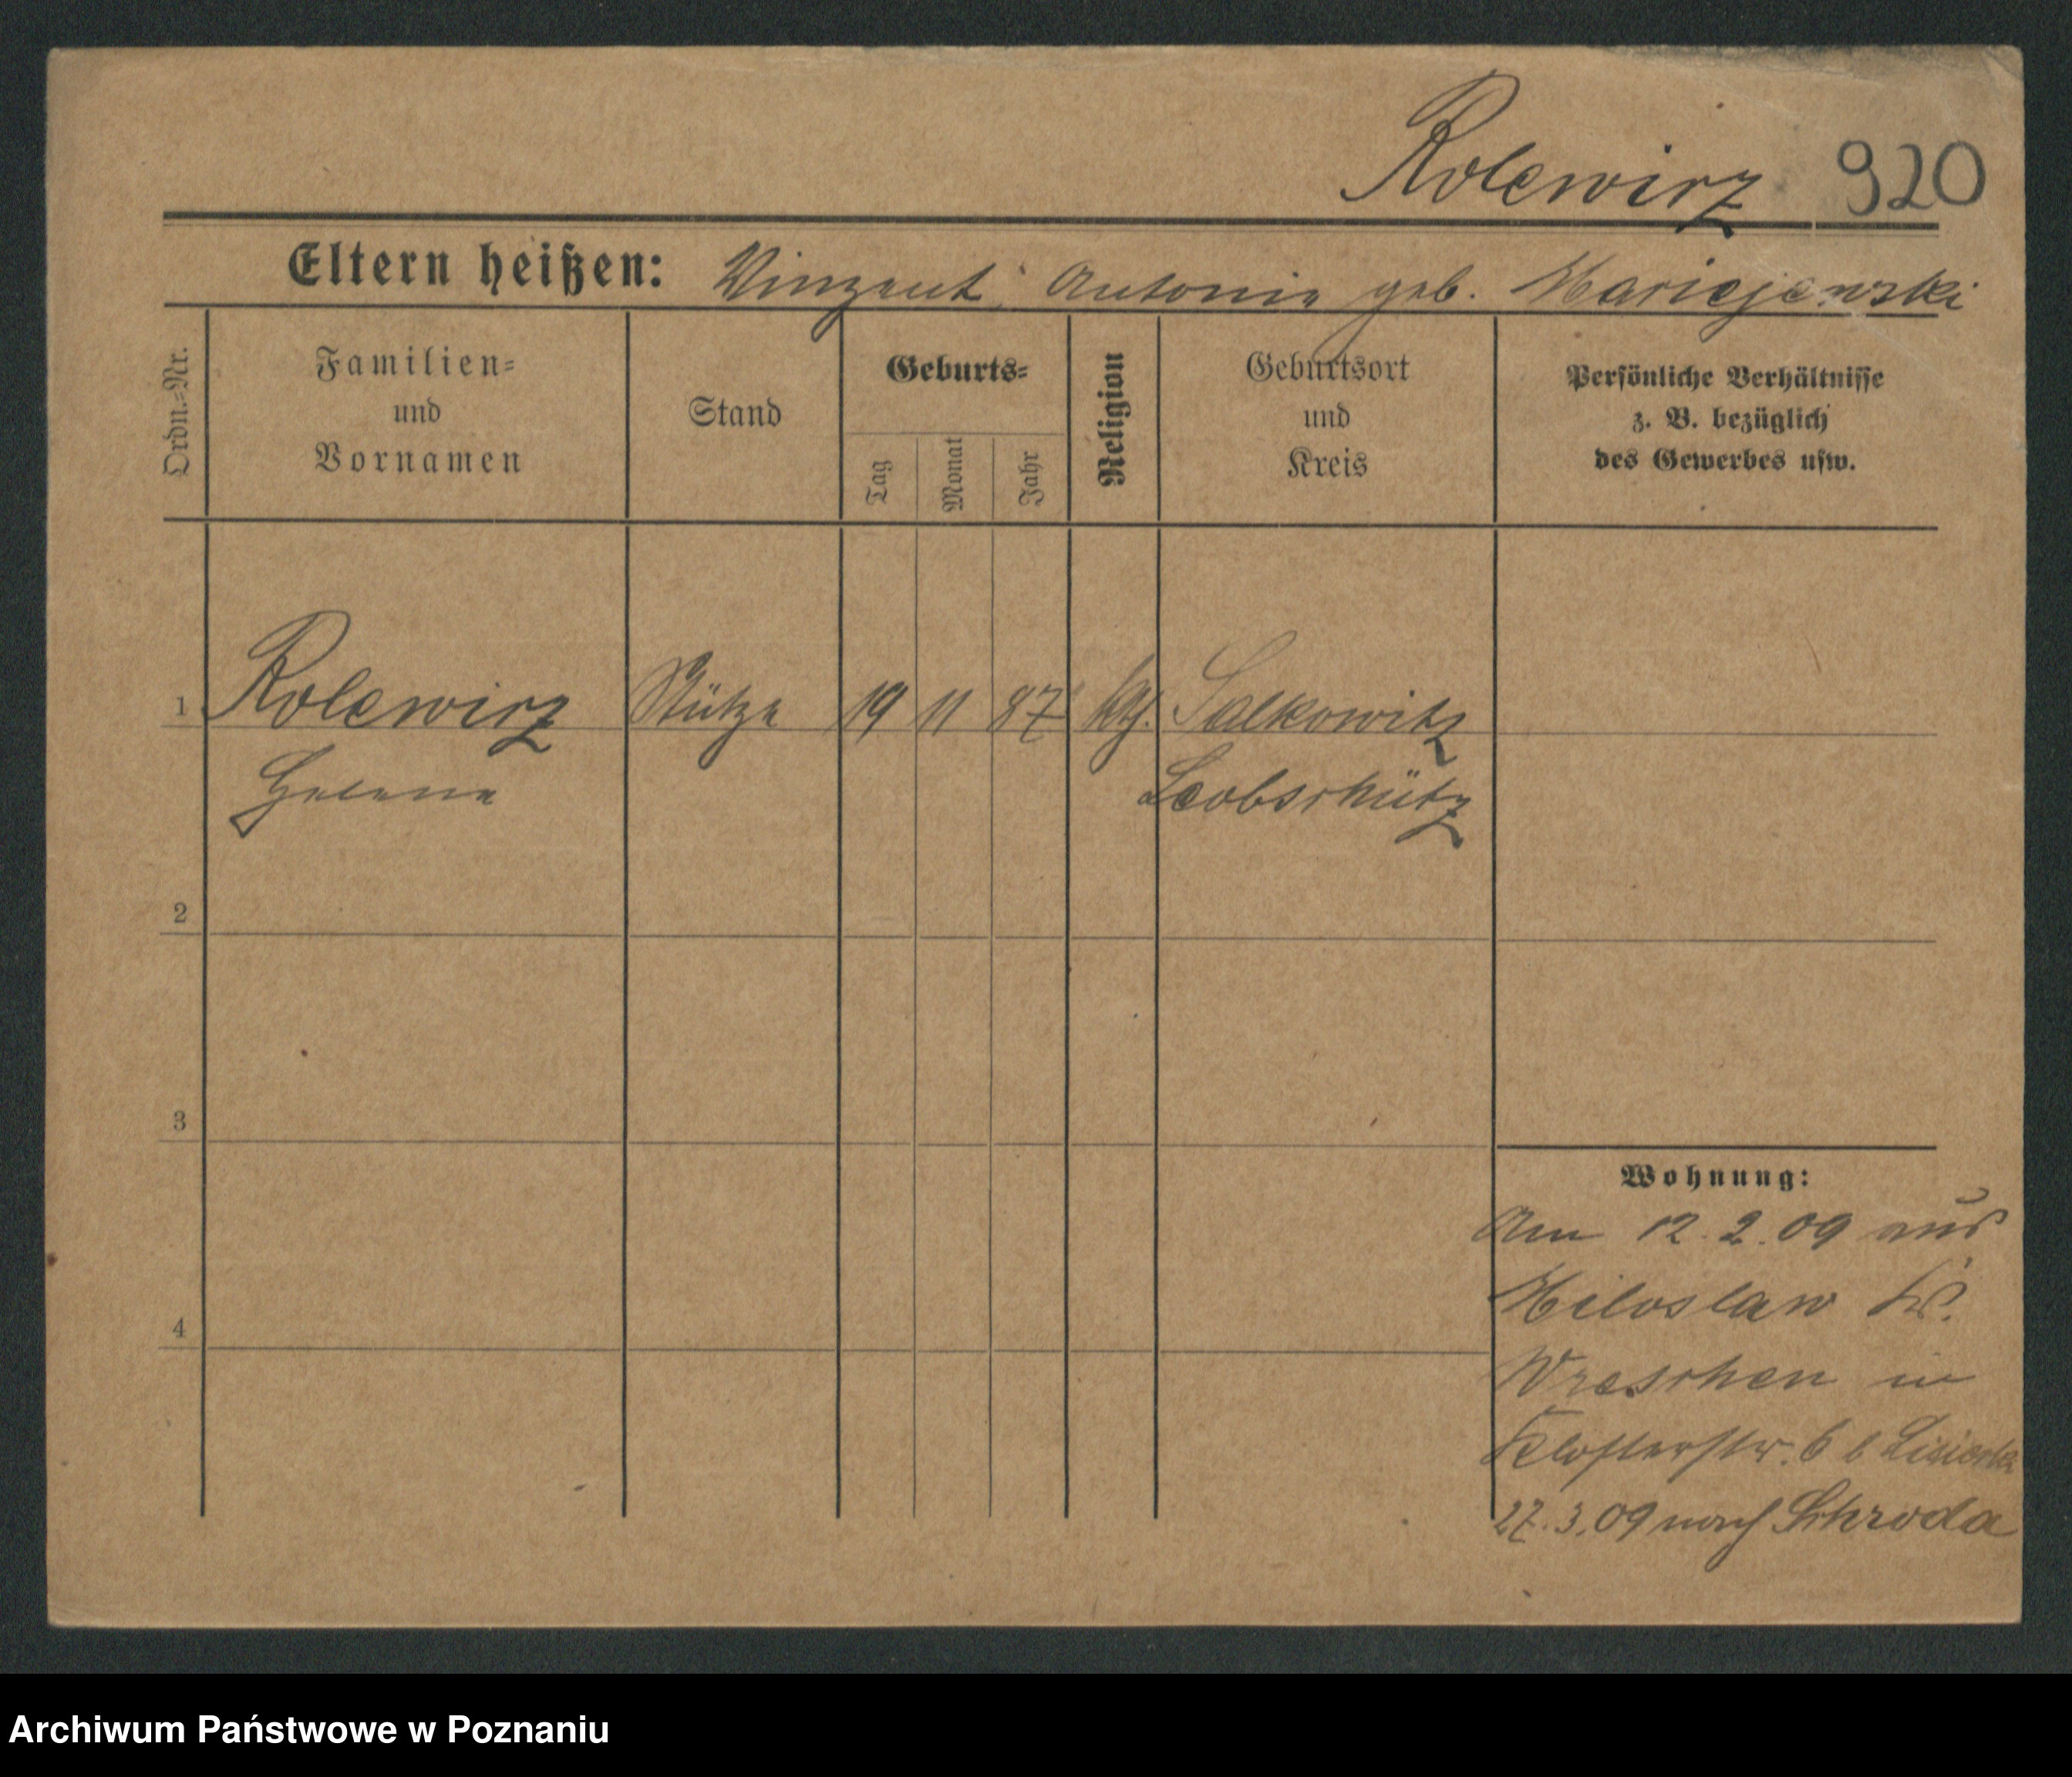 Rolewicz 920
Eltern heißen: Vinzent, Antonie geb. Maciejewski
Ordn.-Nr.
Familien-
und
Vornamen
Stand
Geburts-
Tag
Monat
Jahr
Religion
Geburtsort
und
Kreis
Persönliche Verhältnisse
z. B. bezüglich
des Gewerbes usw.
1 Rolewicz Stütze 19 11 87 kth. Salkowitz
Helene Leobschütz
2
3
4
Wohnung:
Am 12.2.09 aus
Miloslaw Kr.
Wreschen in
Klosterstr. 6 b
27.3.09 nach Schroda
Archiwum Państwowe w Poznaniu